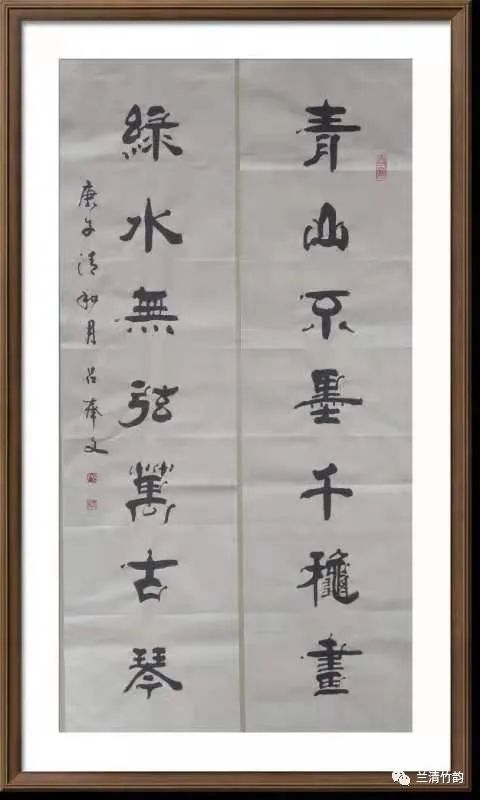 青山不墨千龝畫
綠水無弦萬古琴
庚子清和月 呂奉文
兰清竹韵